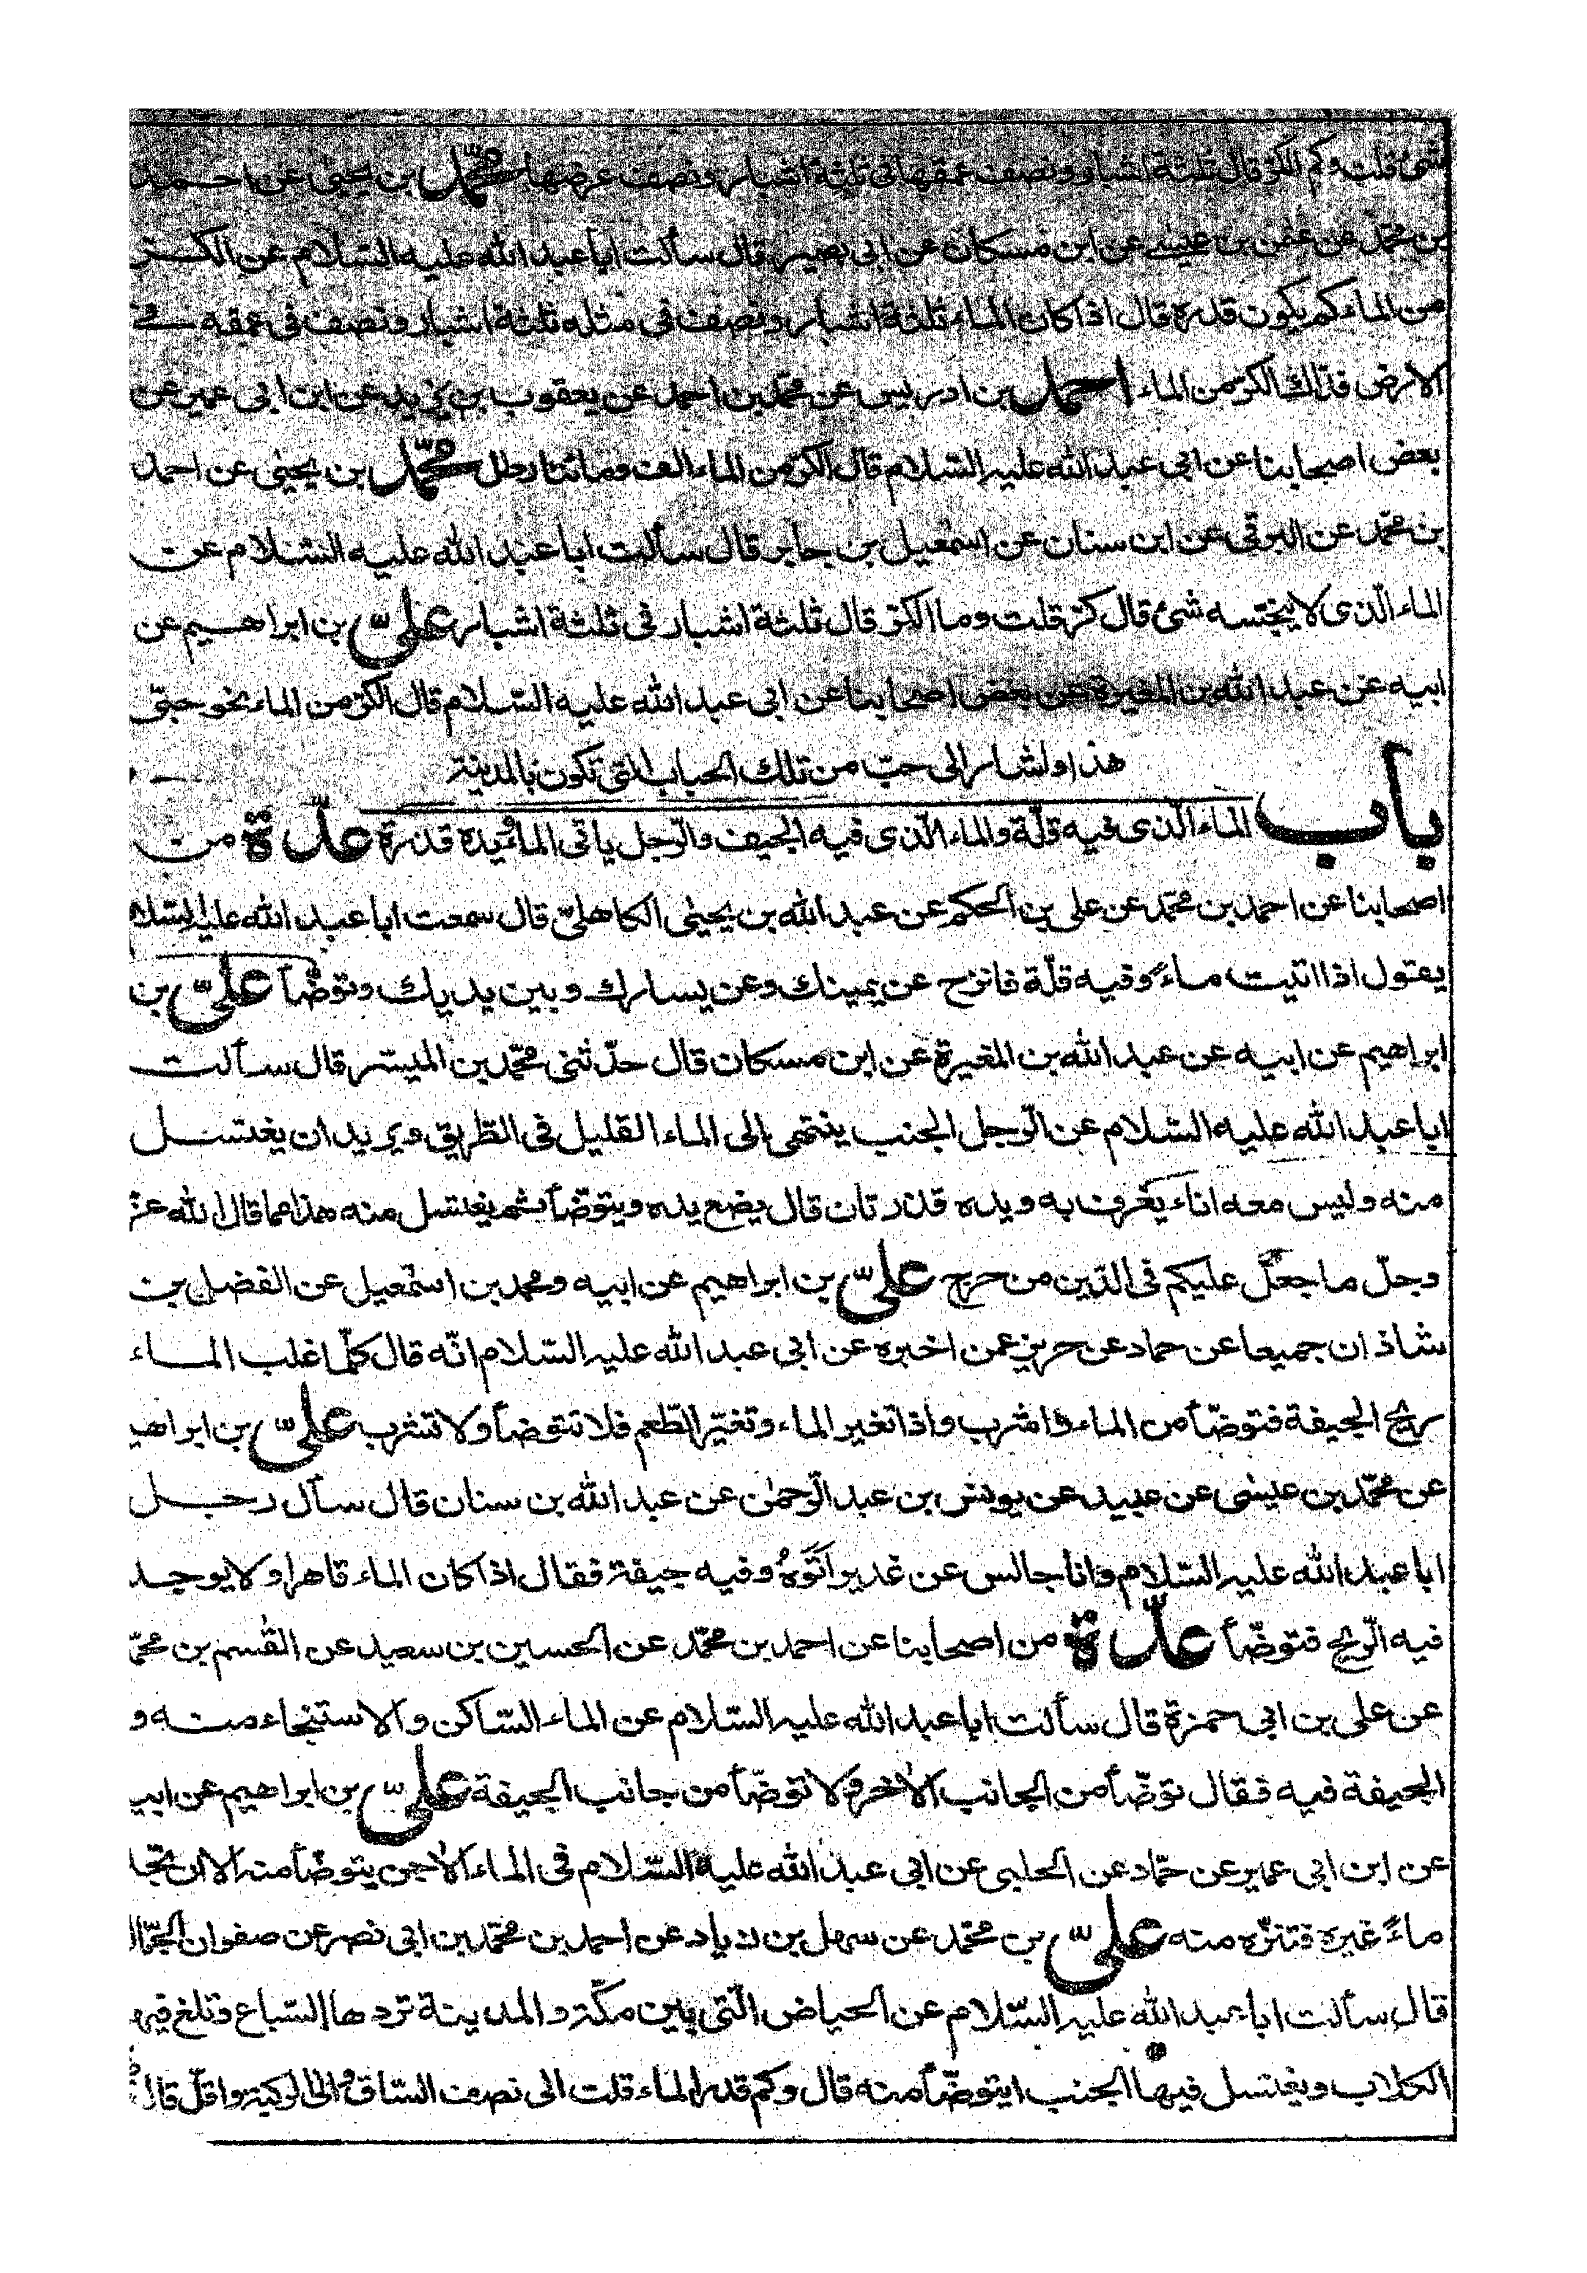 شئ قلت وكم الكر قال ثلثة اشبار ونصف عمقها في ثلثة اشبار ونصف عرضها محمد بن يحيى عن احمد
بن محمد عن عثمن بن عيسى عن ابن مسكان عن ابى بصير قال سألت ابا عبد الله عليه السلام عن الكر
من الماء كم يكون قدره قال اذا كان الماء ثلثة اشبار ونصف فى مثله ثلثة اشبار ونصف فى عمقه فى
الارض فذلك الكر من الماء احمد بن ادريس عن محمد بن احمد عن يعقوب بن يزيد عن ابن ابى عمير عن
بعض اصحابنا عن ابى عبد الله عليه السلام قال الكر من الماء الف ومائتا رطل محمد بن يحيى عن احمد
بن محمد عن البرقى عن ابن سنان عن اسمعيل بن جابر قال سألت ابا عبد الله عليه السلام عن
الماء الّذى لا ينجّسه شئ قال كرّ قلت وما الكرّ قال ثلثة اشبار فى ثلثة اشبار علىّ بن ابراهيم عن
ابيه عن عبد الله بن المغيرة عن بعض اصحابنا عن ابى عبد الله عليه السلام قال الكرّ من الماء نحو حبّى
هذا واشار الى حبّ من تلك الحباب التى تكون بالمدينة
باب الماء الّذى فيه قلّة والماء الّذى فيه الجيف والرّجل ياتى الماء ويده قذرة عدّة من
اصحابنا عن احمد بن محمّد عن على بن الحكم عن عبد الله بن يحيى الكاهلىّ قال سمعت ابا عبد الله عليه السلام
يقول اذا اتيت ماءً وفيه قلّة فانزح عن يمينك وعن يسارك وبين يديك وتوضّأ علىّ بن
ابراهيم عن ابيه عن عبد الله بن المغيرة عن ابن مسكان قال حدّثنى محمّد بن الميسّر قال سألت
ابا عبد الله عليه السّلام عن الرّجل الجنب ينتهى الى الماء القليل فى الطّريق ويريد ان يغتسل
منه وليس معه اناء يغرف به ويده قذرتان قال يضع يده ويتوضّأ ثم يغتسل منه هذا مما قال الله عزّ
وجلّ ما جعل عليكم فى الدّين من حرج علىّ بن ابراهيم عن ابيه ومحمد بن اسمعيل عن الفضل بن
شاذان جميعا عن حماد عن حريز عمن اخبره عن ابى عبد الله عليه السّلام انّه قال كلّما غلب الماء
ريح الجيفة فتوضّأ من الماء واشرب واذا تغير الماء وتغيّر الطّعم فلا تتوضأ ولا تشرب علىّ بن ابراهيم
عن محمّد بن عيسى عن عبيد عن يونس بن عبد الرّحمن عن عبد الله بن سنان قال سأل رجل
ابا عبد الله عليه السّلام وانا جالس عن غدير اتوه وفيه جيفة فقال اذا كان الماء قاهرا ولا يوجد
فيه الرّيح فتوضّأ عدّة من اصحابنا عن احمد بن محمّد عن الحسين بن سعيد عن القسم بن محمّد
عن على بن ابى حمزة قال سألت ابا عبد الله عليه السّلام عن الماء السّاكن والاستنجاء منه و
الجيفة فيه فقال توضّأ من الجانب الآخر ولا توضّأ من جانب الجيفة علىّ بن ابراهيم عن ابيه
عن ابن ابى عمير عن حمّاد عن الحلبى عن ابى عبد الله عليه السّلام فى الماء الآجن يتوضّأ منه الا ان تجد
ماءً غيره فتنزّه منه علىّ بن محمّد عن سهل بن زياد عن احمد بن محمّد بن ابى نصر عن صفوان الجمّال
قال سألت ابا عبد الله عليه السّلام عن الحياض الّتى بين مكّة والمدينة تردها السّباع وتلغ فيها
الكلاب ويغتسل فيها الجنب ايتوضّأ منه قال وكم قدر الماء قلت الى نصف السّاق والى الركبة واقلّ قال